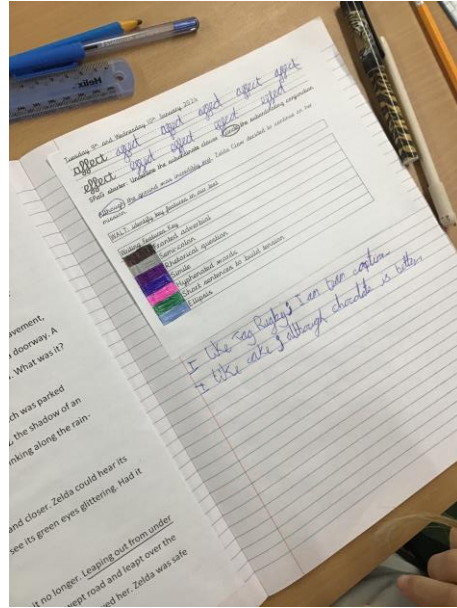 Helix
Tuesday 9th and Wednesday 10th January 2024
affect affect affect affect affect affect
effect effect effect effect effect
Short starter: Underline the subordinate clause. Circle the subordinating conjunction
Although the ground was incredibly wet, Zelda Claw decided to continue on her
mission.
WALT: identify key features in our text
Writing Features Key
Fronted adverbial
Semi-colon
Rhetorical question
Simile
Hyphenated words
Short sentences to build tension
Ellipsis
I like Tag Rugby; I am team captain.
I like cake; although chocolate is better.
avement,
doorway. A
. What was it?
ch was parked
the shadow of an
nking along the rain-
and closer. Zelda could hear its
see its green eyes glittering. Had it
it no longer. Leaping out from under
wept road and leapt over the
ved her. Zelda was safe